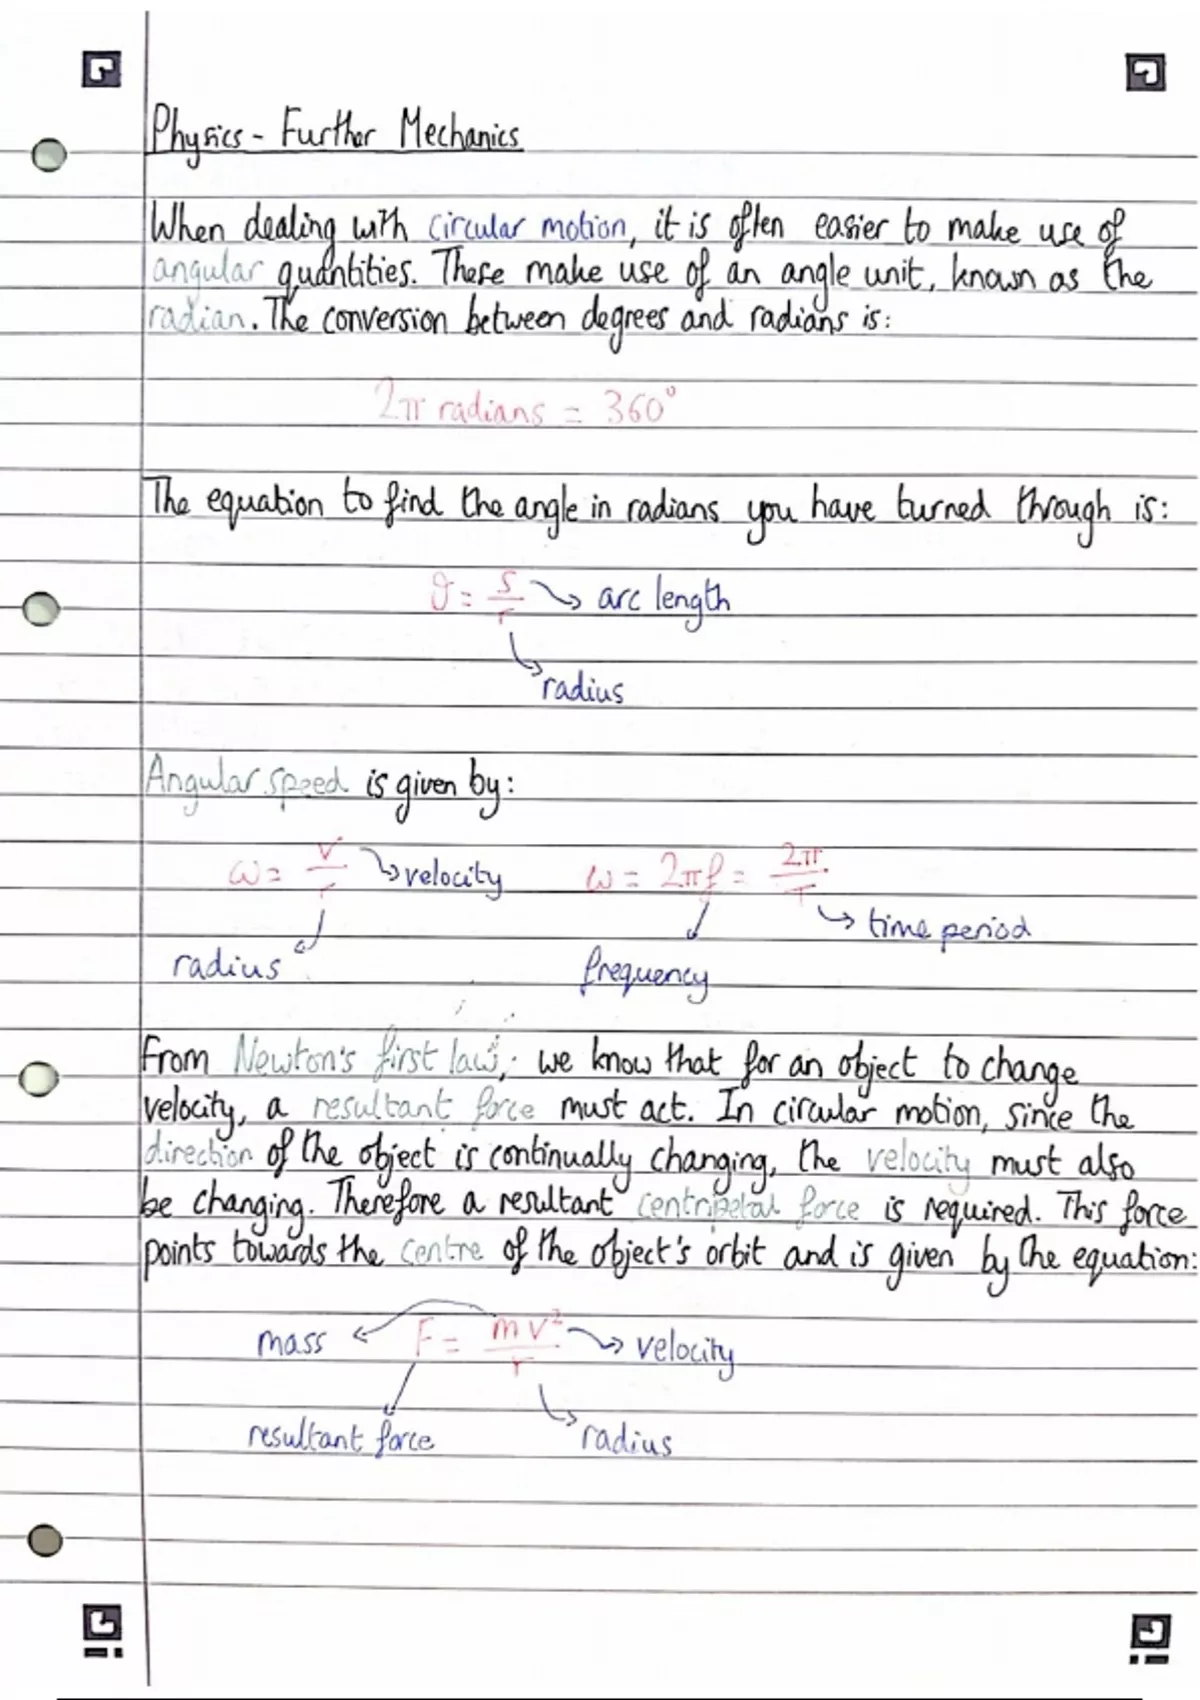 Physics - Further Mechanics
When dealing with circular motion, it is often easier to make use of
angular quantities. These make use of an angle unit, known as the
radian. The conversion between degrees and radians is:
2π radians = 360°
The equation to find the angle in radians you have turned through is:
θ = s/r → arc length
radius
Angular speed is given by:
ω = v/r → velocity ω = 2πf = 2π/T
→ time period
radius frequency
From Newton's first law, we know that for an object to change
velocity, a resultant force must act. In circular motion, since the
direction of the object is continually changing, the velocity must also
be changing. Therefore a resultant centripetal force is required. This force
points towards the centre of the object's orbit and is given by the equation:
mass ← F = mv²/r → velocity
resultant force radius